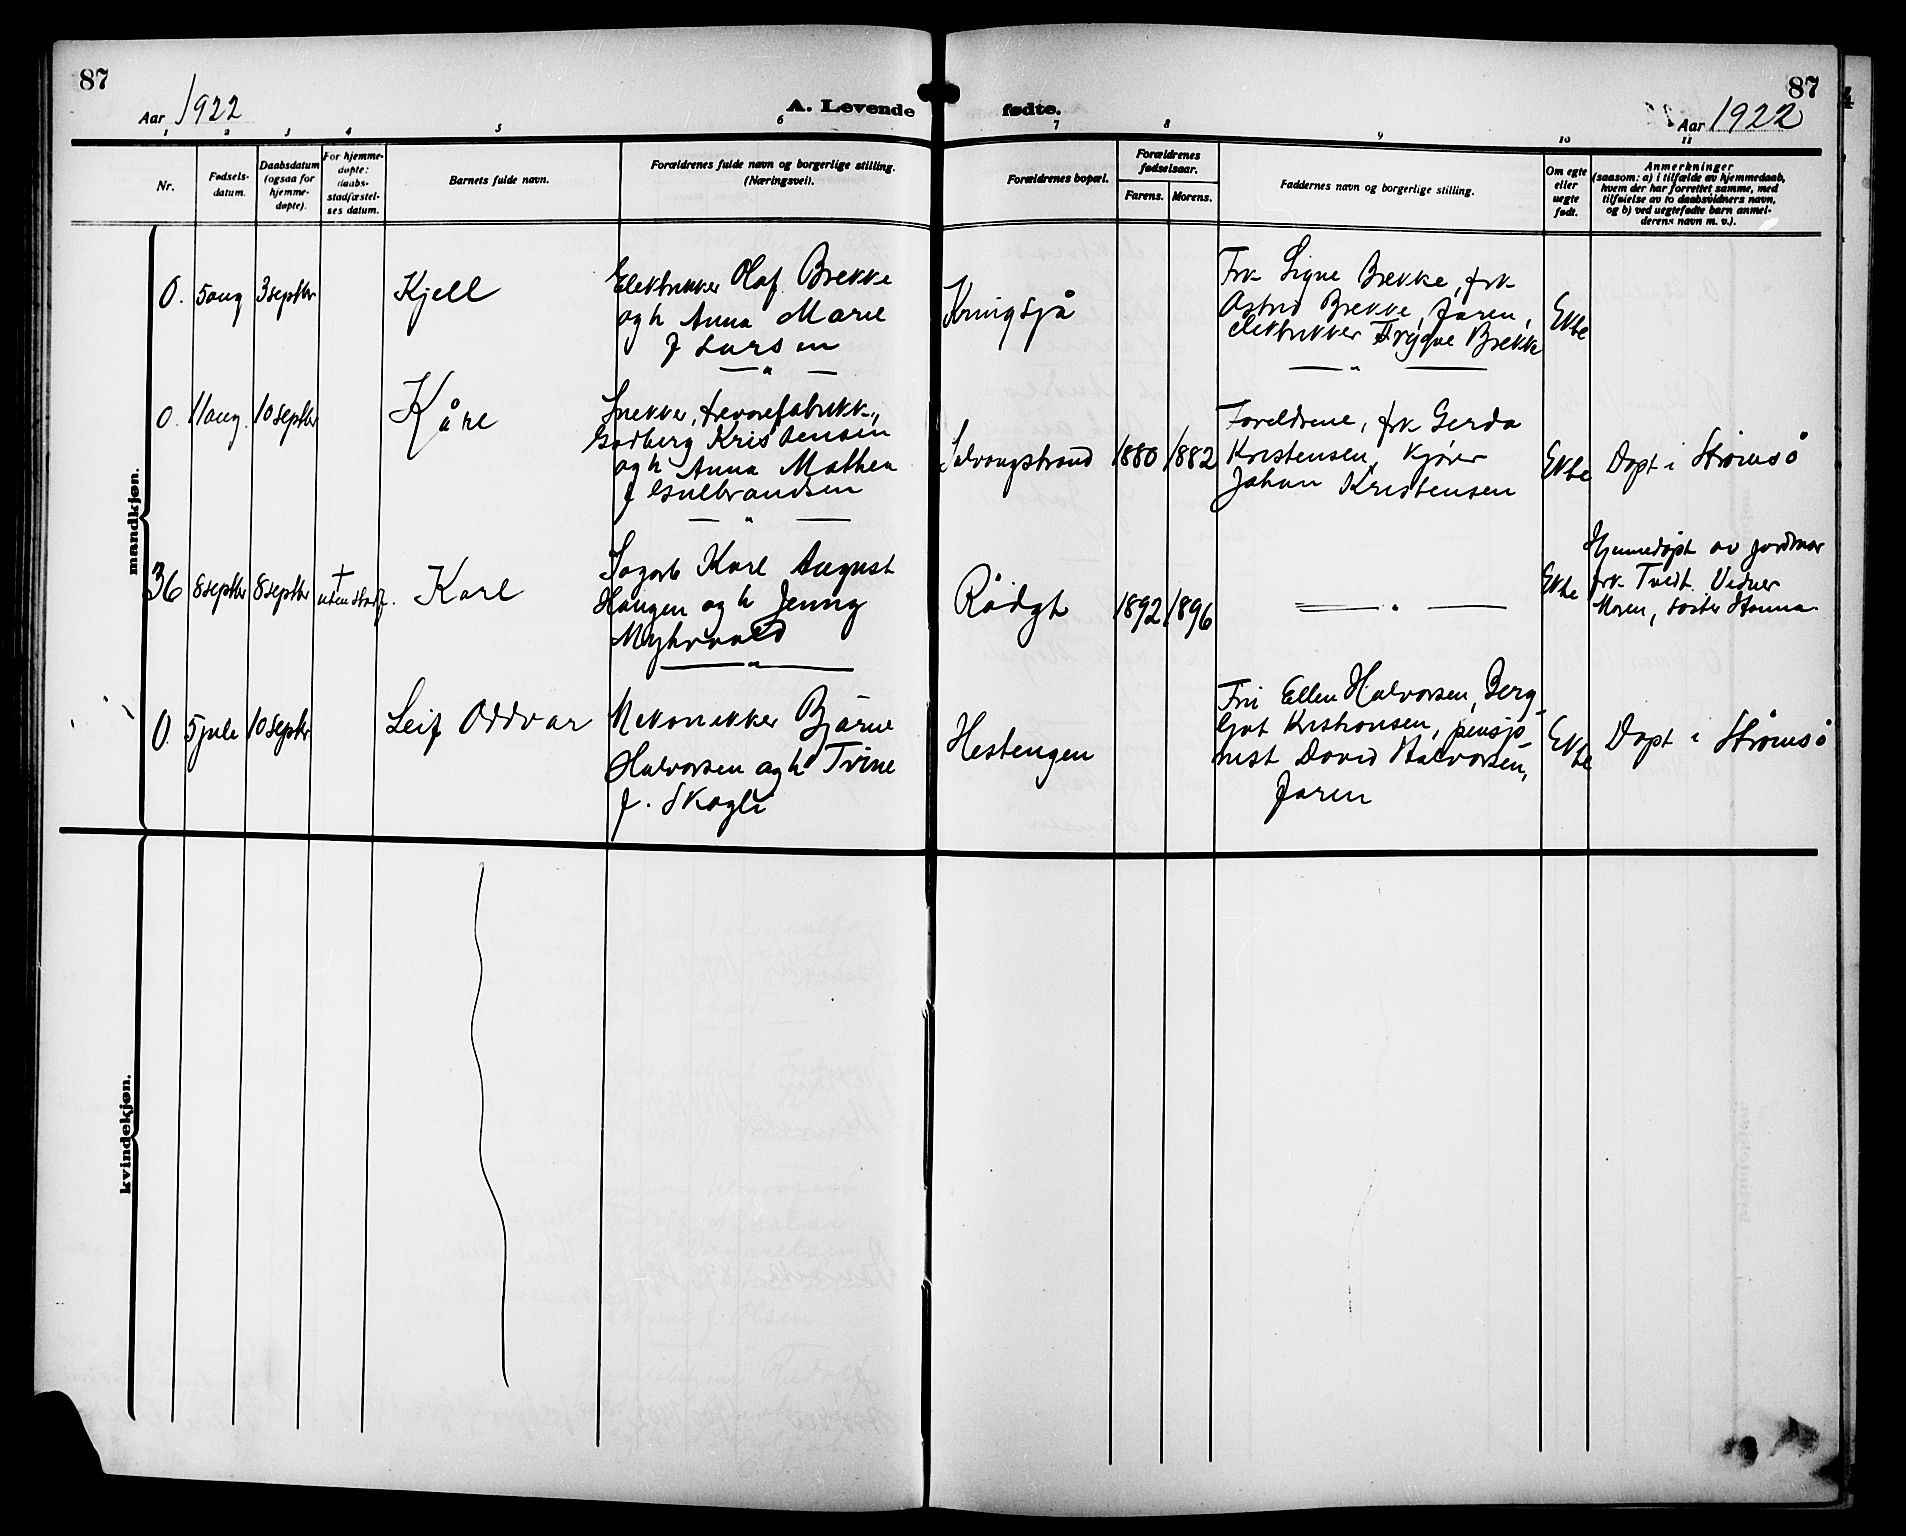 87
Aar 1922
A. Levende fødte.
87
Aar 1922
1 2 3 4 5 6 7 8 9 10 11
Nr.
Fødsels-
datum.
Daabsdatum
(ogsaa for
hjemme-
døpte).
For hjemme-
døpte:
daabs-
stadfæstel-
ses datum.
Barnets fulde navn.
Forældrenes fulde navn og borgerlige stilling.
(Næringsvei).
Forældrenes bopæl.
Forældrenes
fødselsaar.
Farens. Morens.
Faddernes navn og borgerlige stilling.
Om egte
eller
uegte
født.
Anmerkninger
(saasom: a) i tilfælde av hjemmedaab,
hvem der har forrettet samme, med
tilføielse av to daabsvidners navn,
og b) ved uegtefødte barn anmel-
derens navn m. v.).
mandkjøn.
0. 5 aug 3 septbr
Kjell
Elektrikker Olaf Brekke
og h Anna Marie
f Larsen
Kringsjå
Frk Signe Brekke, frk
Astrid Brekke, Faren,
elektrikker Trygve Brekke
Ekte
0. 11 aug. 10 septbr
Kåre
Snekker, trevarefabrikk.,
Godberg Kristensen
og h Anna Mathea
f Gulbrandsen
Solvangstrand
1880 1882
Foreldrene, frk Gerda
Kristensen, kjører
Johan Kristensen
Ekte
Døpt i Strømsö
36 8 septbr 8 septbr
†
uten stadf.
Karl
Sagarb Karl August
Haugen og h Jenny
Myhrvold
Rödgt
1892 1896
Ekte
Hjemmedöpt av jordmor
frk Tvedt. Vidner
Moren, söster Hanna.
0. 5 jule 10 septbr
Leif Oddvar
Mekanikker Bjarne
Halvorsen og h Trine
f. Skogli
Hestengen
Fru Ellen Halvorsen, Berg-
ljot Kristiansen, pensjo-
nist David Halvorsen,
Faren
Ekte
Døpt i Strømsö
kvindekjøn.